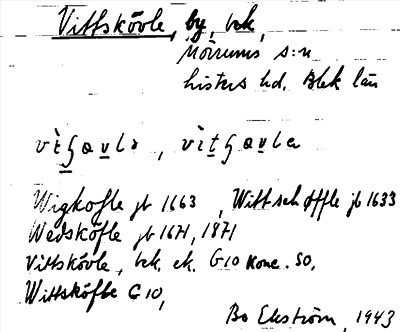 Vittskövle, by, bek,
Mörrums s:n
Listers hd. Blek län
vìʃɧøvlə, vìtɧøvlə
Wigkofle jb 1663, Wittschöffle jb 1633
Wedsköfle jb 1671, 1871
Vittskövle, bek. ek. G10 Konc. SO,
Wittsköfle G10,
Bo Ekström, 1943